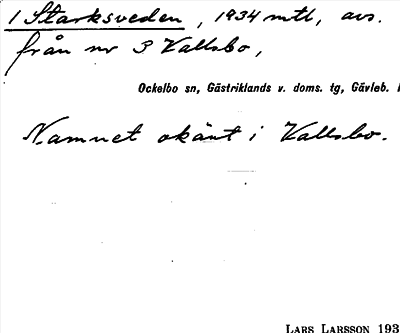 1 Starksveden, 1934 mtl, avs.
från nr 3 Vallsbo,
Ockelbo sn, Gästriklands v. doms. tg, Gävleb.
Namnet okänt i Vallsbo.
LARS LARSSON 193